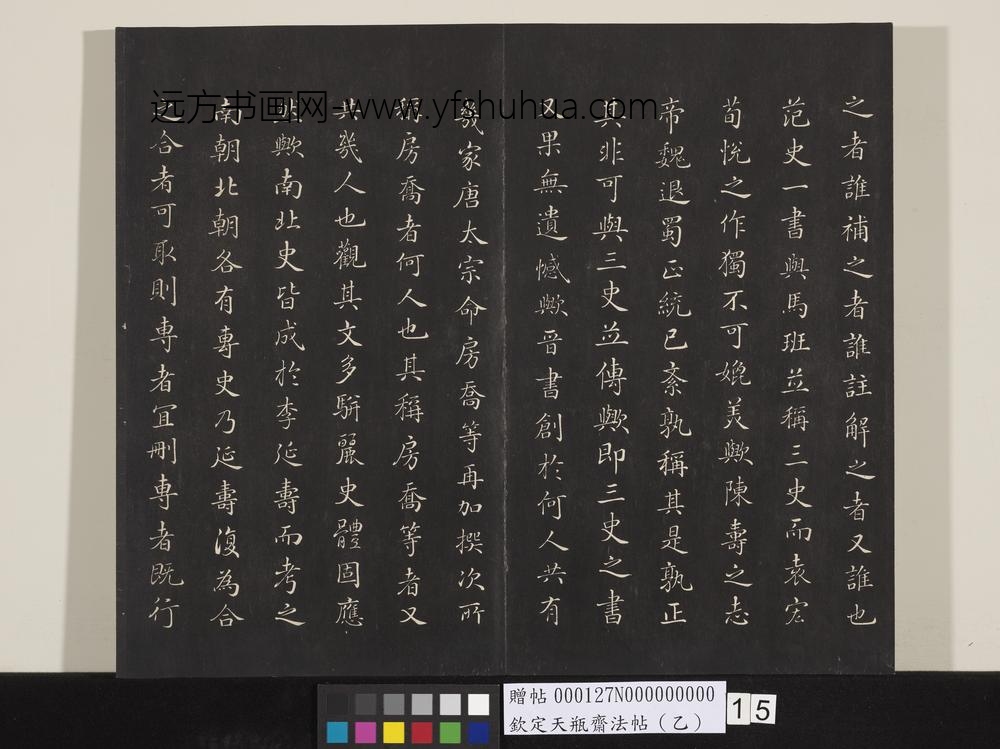 之者誰補之者誰註解之者又誰也
范史一書與馬班並稱三史而袁宏
荀悅之作獨不可媲美歟陳壽之志
帝魏退蜀正統已紊孰稱其是孰正
其非可與三史並傳歟即三史之書
又果無遺憾歟晉書創於何人共有
幾家唐太宗命房喬等再加撰次所
稱房喬者何人也其稱房喬等者又
共幾人也觀其文多駢麗史體固應
歟南北史皆成於李延壽而考之
南朝北朝各有專史乃延壽復為合
之合者可取則專者宜刪專者既行
远方书画网-www.yfshuhua.com
贈帖 000127N000000000
欽定天瓶齋法帖（乙）
15